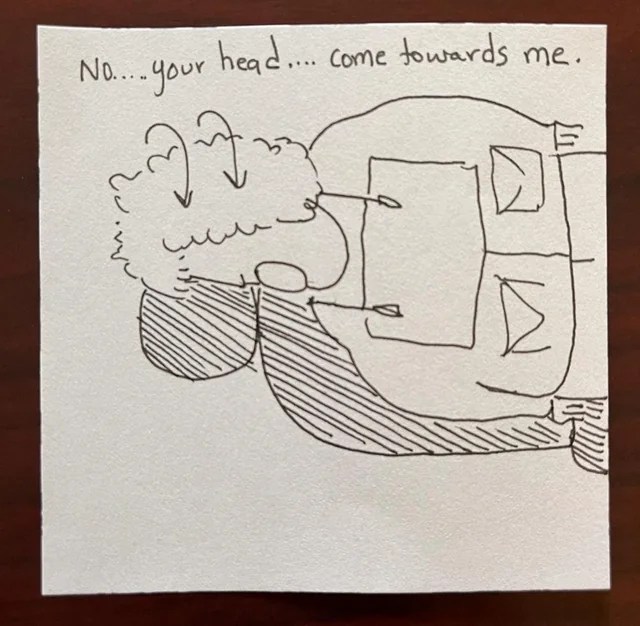 No.....your head.... come towards me.